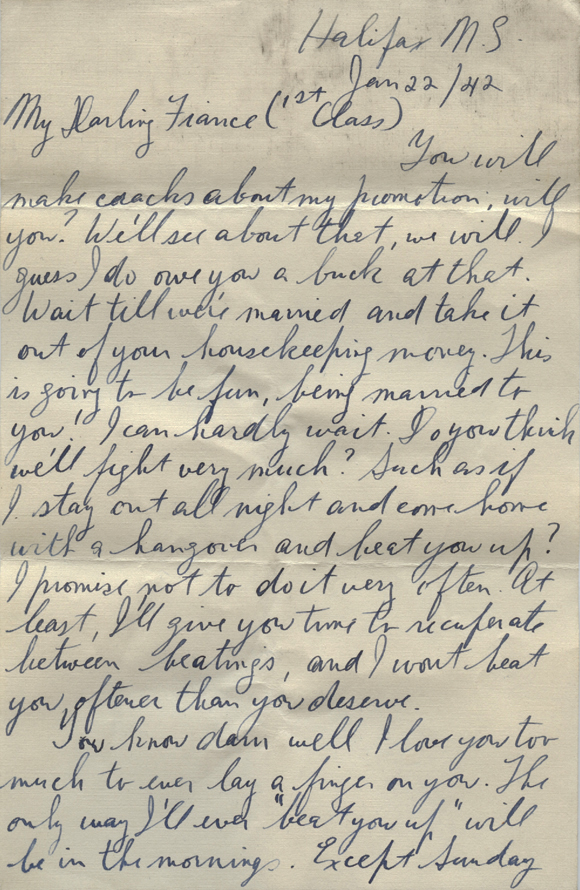 Halifax N.S.
Jan 22/42
My Darling Fiance (1st Class)
You will
make cracks about my promotion, will
you? We'll see about that, we will. I
guess I do owe you a buck at that.
Wait till we're married and take it
out of your housekeeping money. This
is going to be fun, being married to
you! I can hardly wait. Do you think
we'll fight very much? Such as if
I stay out all night and come home
with a hangover and beat you up?
I promise not to do it very often. At
least, I'll give you time to recuperate
between beatings, and I wont beat
you oftener than you deserve.
You know darn well I love you too
much to ever lay a finger on you. The
only way I'll ever "beat you up" will
be in the mornings. Except Sunday